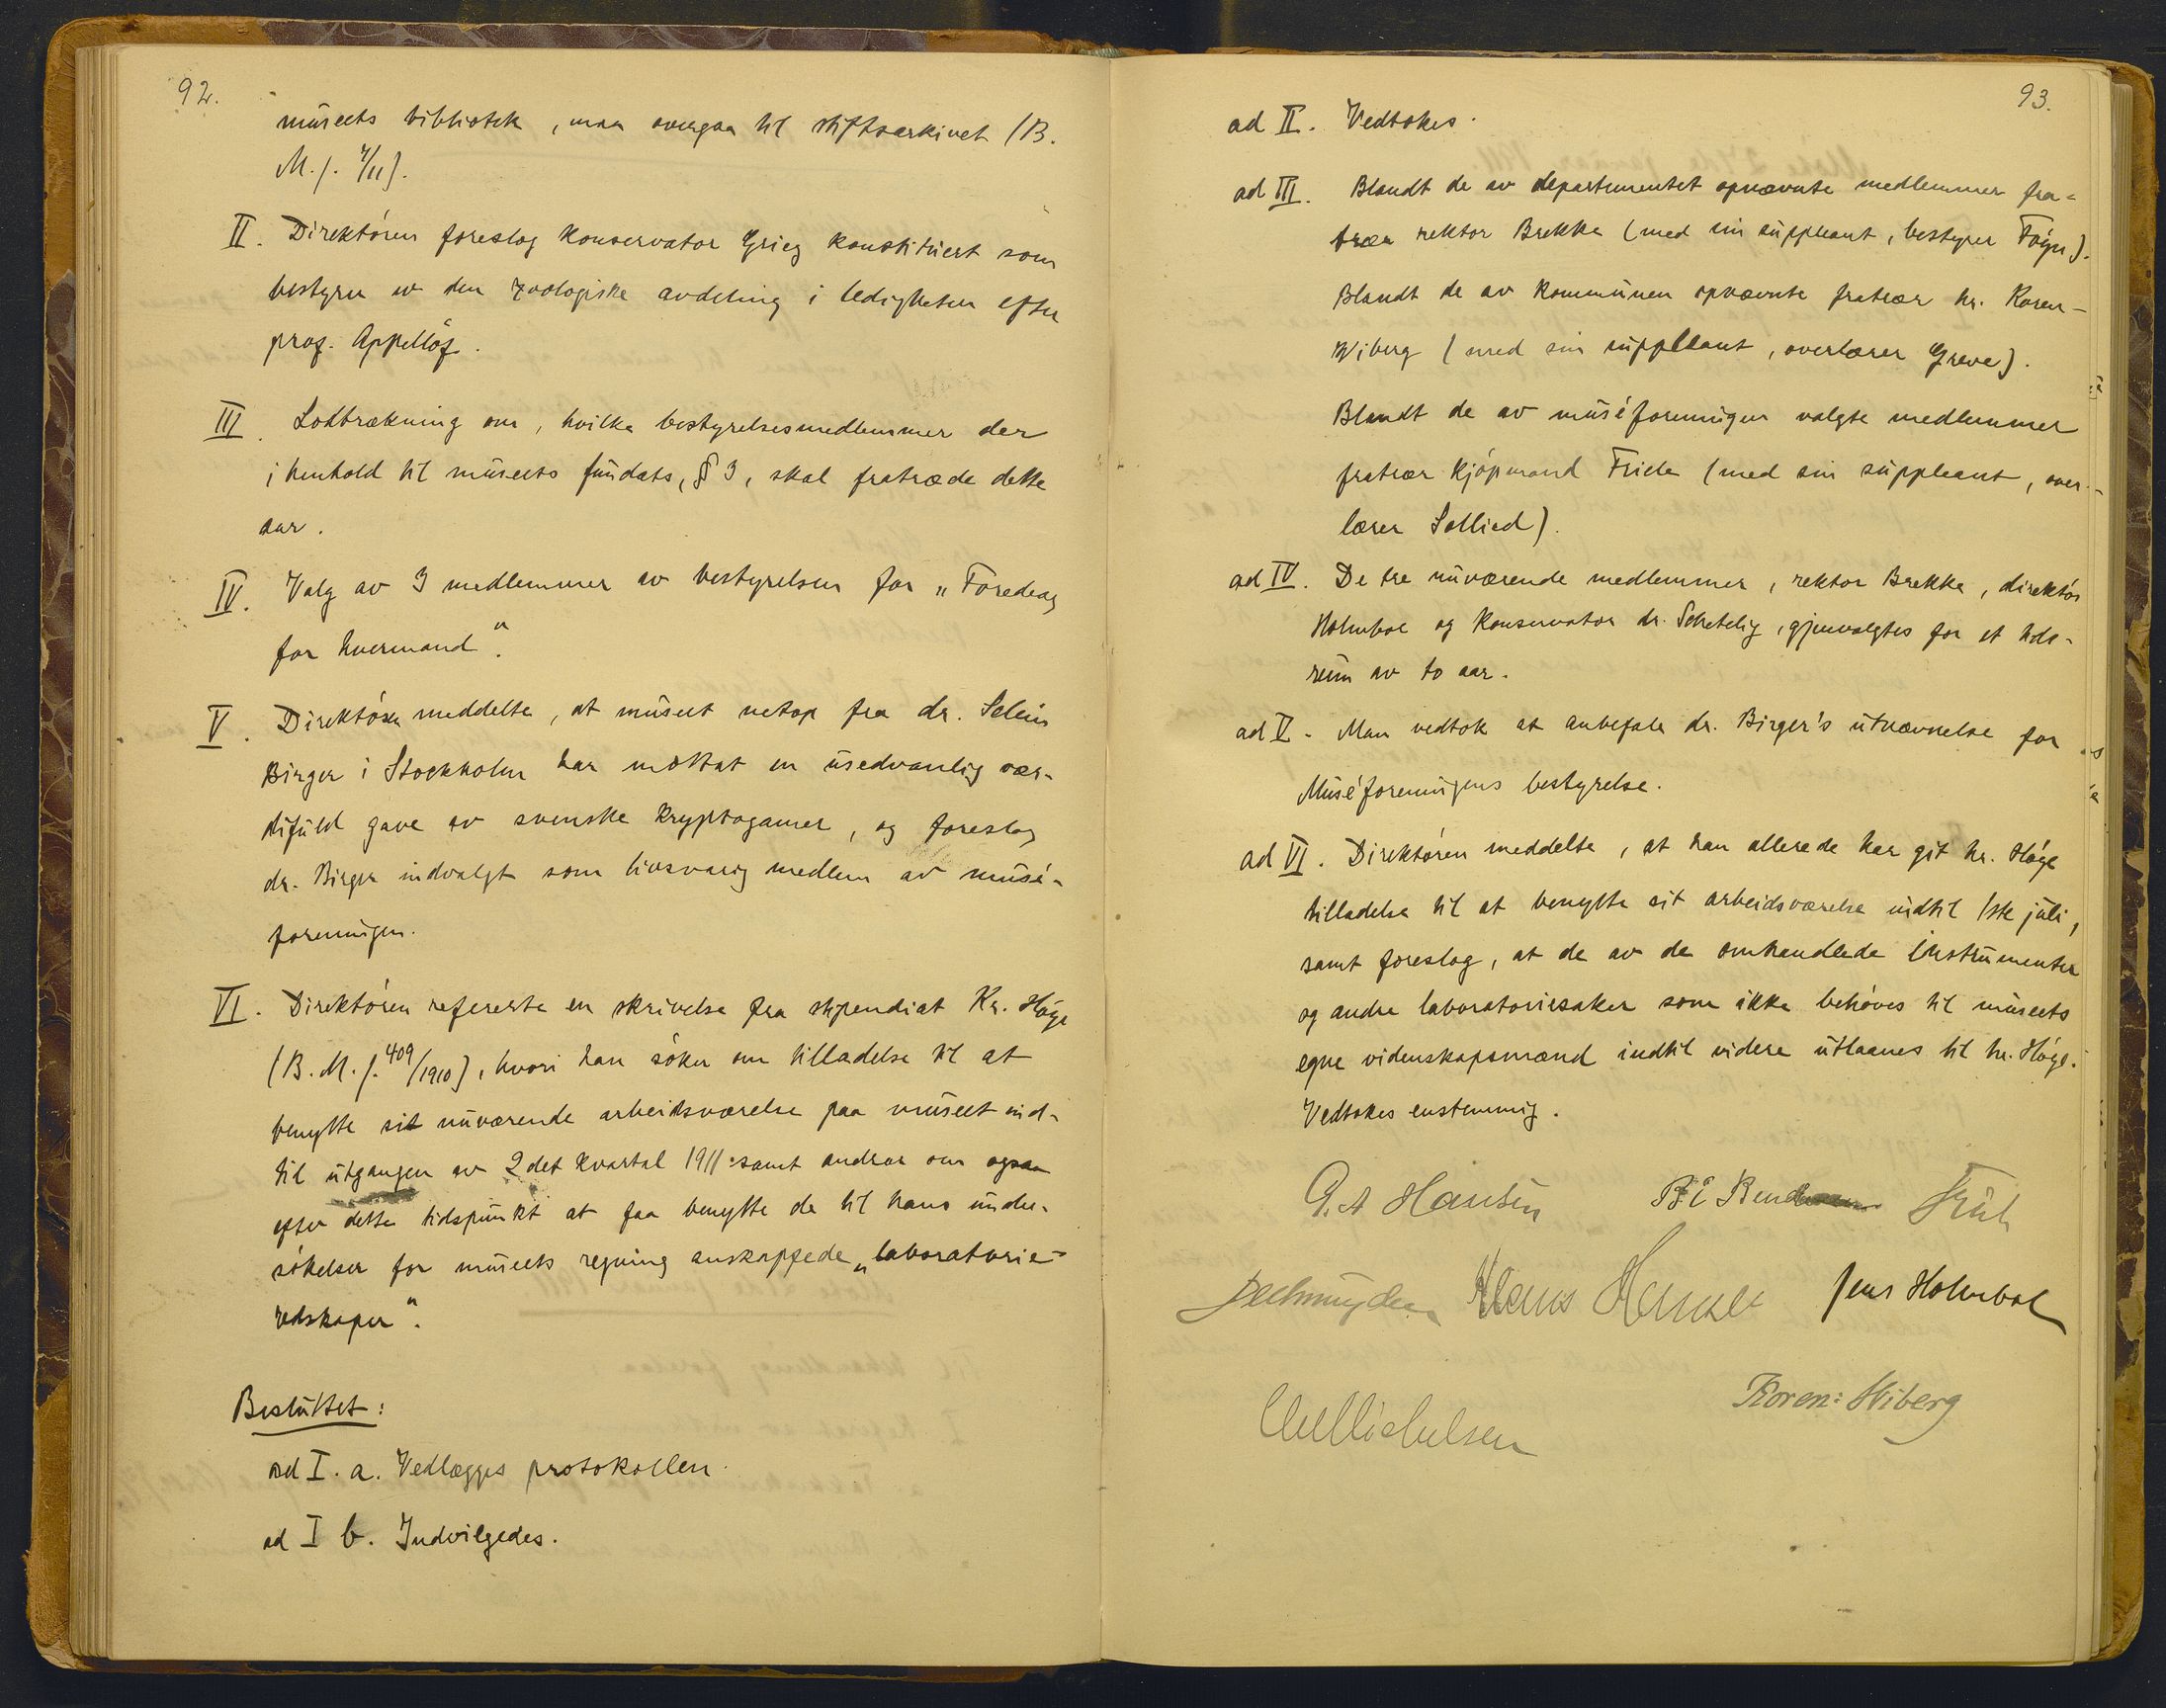 92.
museets bibliotek, maa overgaa til stiftsarkivet (B.
M. j. 7/11).
II. Direktören foreslog konservator Grieg konstituert som
bestyrer av den zoologiske avdeling i ledigheten efter
prof. Appellöf.
III. Lodtrækning om, hvilke bestyrelsesmedlemmer der
i henhold til museets fundats, § 3, skal fratræde dette
aar.
IV. Valg av 3 medlemmer av bestyrelsen for „Foredrag
for hvermand".
V. Direktören meddelte, at museet netop fra dr. Selim
Birger i Stockholm har mottat en usedvanlig vær-
difuld gave av svenske kryptogamer, og foreslog
dr. Birger indvalgt som livsvarig medlem av musé-
foreningen.
VI. Direktören refererte en skrivelse fra stipendiat Kr. Höye
(B. M. j. 409/1910), hvori han söker om tilladelse til at
benytte sit nuværende arbeidsværelse paa museet ind-
til utgangen av 2det kvartal 1911 samt andrar om ogsaa
efter dette tidspunkt at faa benytte de til hans under-
sökelser for museets regning anskaffede „laboratorie-
redskaper".
Besluttet:
ad I. a. Vedlægges protokollen.
ad I b. Indvilgedes.
93.
ad II. Vedtokes.
ad III. Blandt de av departementet opnævnte medlemmer fra-
træer rektor Brekke (med sin suppleant, bestyrer Föyn).
Blandt de av kommunen opnævnte fratrær hr. Koren-
Wiberg (med sin suppleant, overlærer Greve).
Blandt de av muséforeningen valgte medlemmer
fratrær kjöpmand Friele (med sin suppleant, over-
lærer Sollied).
ad IV. De tre nuværende medlemmer, rektor Brekke, direktör
Holmboe og konservator dr. Schetelig, gjenvalgtes for et tids-
rum av to aar.
ad V. Man vedtok at anbefale dr. Birger's utnævnelse for
Muséforeningens bestyrelse.
ad VI. Direktören meddelte, at han allerede har git hr. Höye
tilladelse til at benytte sit arbeidsværelse indtil 1ste juli,
samt foreslog, at de av de omhandlede instrumenter
og andre laboratoriesaker som ikke behöves til museets
egne videnskapsmænd indtil videre utlaanes til hr. Höye.
Vedtokes enstemmig.
G. A Hansen B E Bendixen
Klaus Hanssen Jens Holmboe
Koren-Wiberg